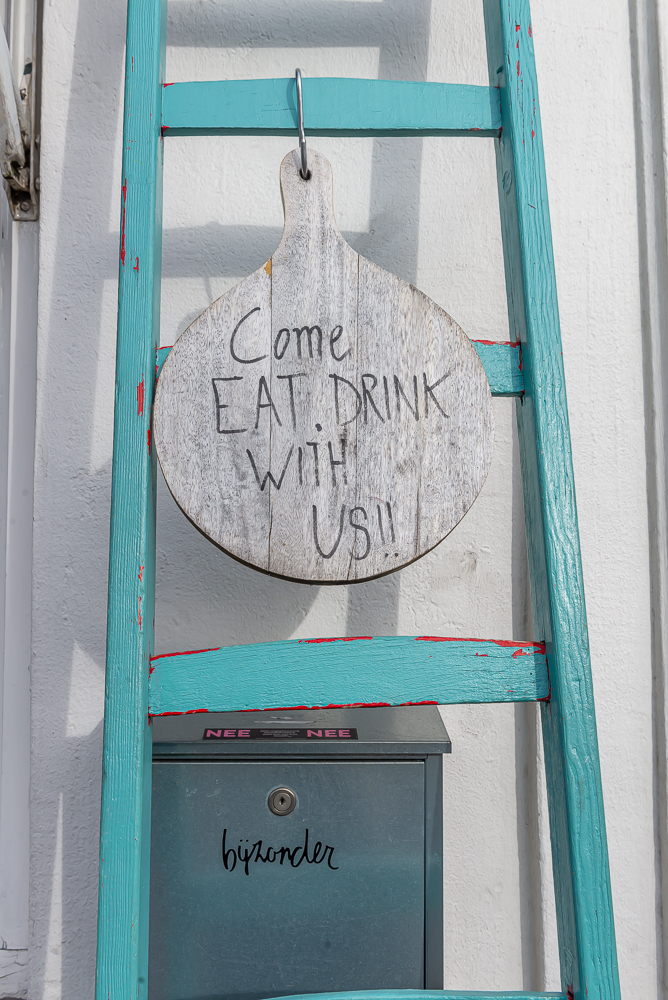 Come
EAT. DRINK
WITH
US!!
NEE NEE
bijzonder